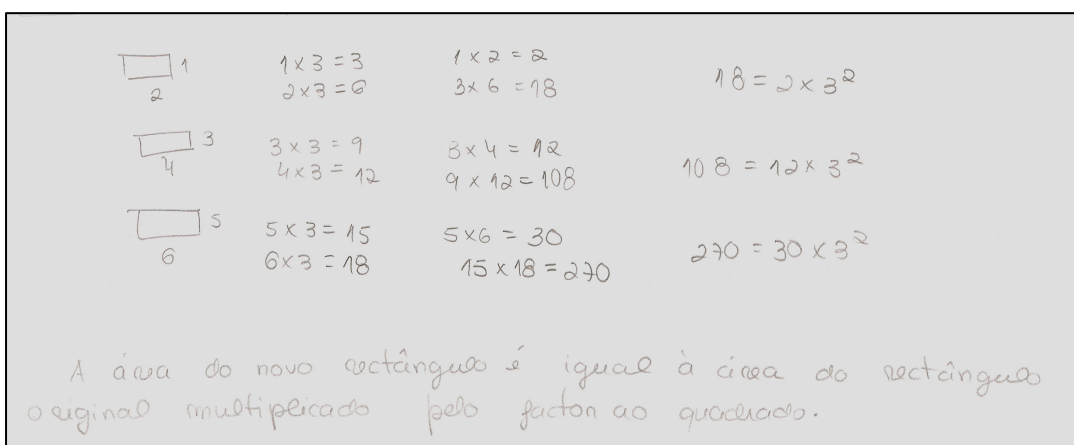 1 1 x 3 = 3 1 x 2 = 2
2 2 x 3 = 6 3 x 6 = 18 18 = 2 x 3²
3 3 x 3 = 9 3 x 4 = 12
4 4 x 3 = 12 9 x 12 = 108 108 = 12 x 3²
5 5 x 3 = 15 5 x 6 = 30
6 6 x 3 = 18 15 x 18 = 270 270 = 30 x 3²
A área do novo rectângulo é igual à área do rectângulo
original multiplicado pelo factor ao quadrado.